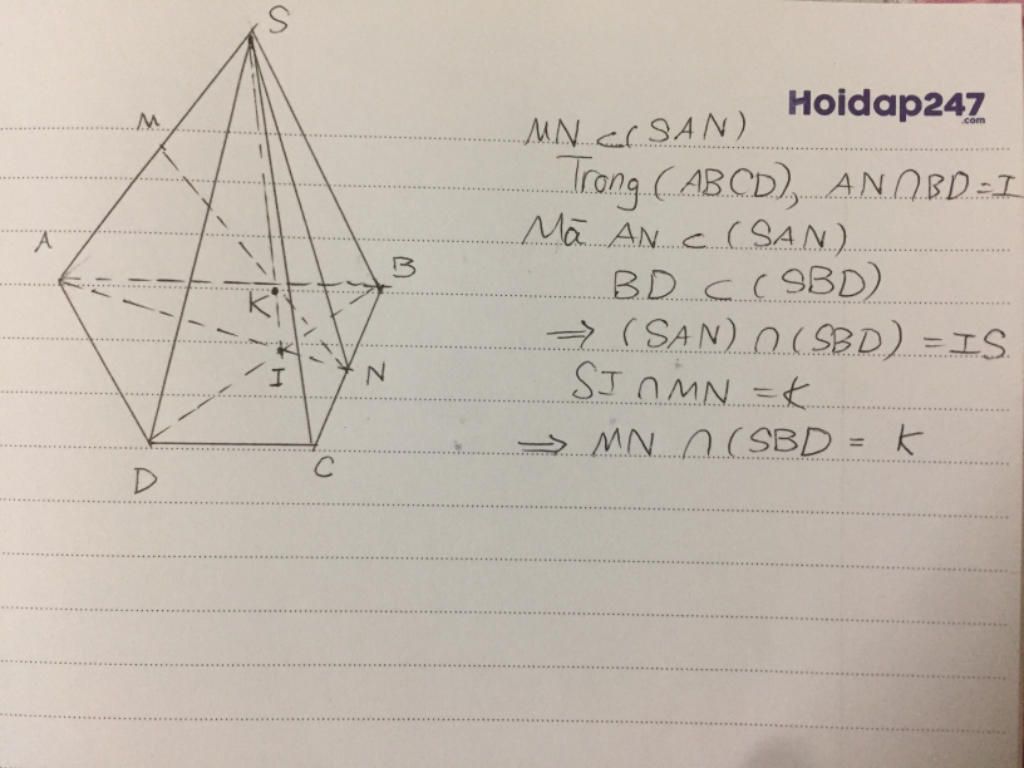 S
M
A
B
K
I
N
D
C
Hoidap247
.com
MN ⊂ (SAN)
Trong (ABCD), AN ∩ BD = I
Mà AN ⊂ (SAN)
BD ⊂ (SBD)
⇒ (SAN) ∩ (SBD) = IS
SI ∩ MN = K
⇒ MN ∩ (SBD = K